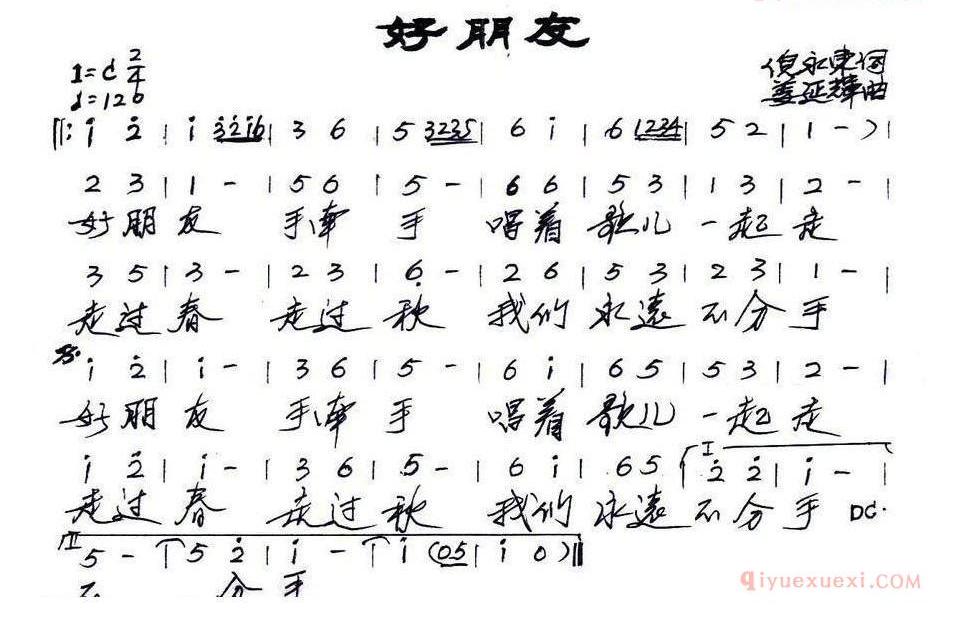 好朋友
1=C 2/4
♩=120
倪永東词
姜延輝曲
‖: i 2̇ | i 3̇2̇i6 | 3 6 | 5 3235 | 6 i | 6 1234 | 5 2 | 1 - ) |
2 3 | 1 - | 5 6 | 5 - | 6 6 | 5 3 | 1 3 | 2 - |
好朋友 手牵手 唱着歌儿一起走
3 5 | 3 - | 2 3 | 6̣ - | 2 6 | 5 3 | 2 3 | 1 - |
走过春 走过秋 我们永遠不分手
i 2̇ | i - | 3 6 | 5 - | 6 i | 6 5 | 5 3 | 2 - |
好朋友 手牵手 唱着歌儿一起走
i 2̇ | i - | 3 6 | 5 - | 6 i | 6 5 | I 2̇ 2̇ | i - |
走过春 走过秋 我们永遠不分手 DC.
II 5 - | 5 2̇ | i - | i (05 | i 0 ) ‖
不 分手
qiyuexuexi.COM